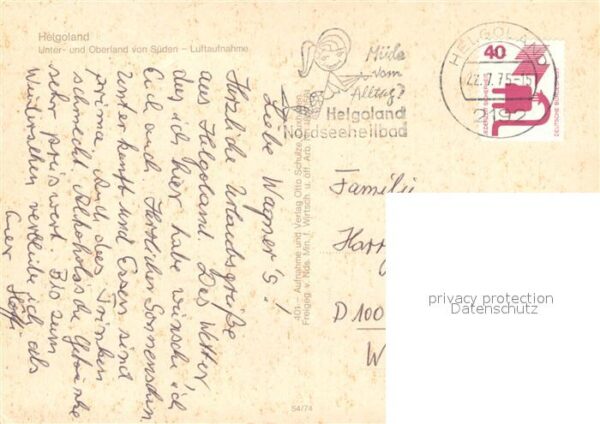 Helgoland
Unter- und Oberland von Süden – Luftaufnahme
Liebe Wagner's!
Herzliche Urlaubsgrüße
aus Helgoland. Das Wetter,
das ich hier habe wünsche ich
Euch auch. Herrlicher Sonnenschein
Unterkunft und Essen sind
prima. Auch das Trinken
schmeckt. Alkoholische Getränke
sehr preiswert. Bis zum
Wiedersehen verbleibe ich als
Euer
401 – Aufnahme und Verlag Otto Schulze
Freigeg. v. Nds. Min. f. Wirtsch. u. öff. Arb.
54/74
Müde
vom
Alltag?
Helgoland
Nordseeheilbad
HELGOLAND
2192
40
JEDERZEIT SICHERHEIT
DEUTSCHE BUNDESPOST
Familie
Harr
D 100
W
privacy protection
Datenschutz